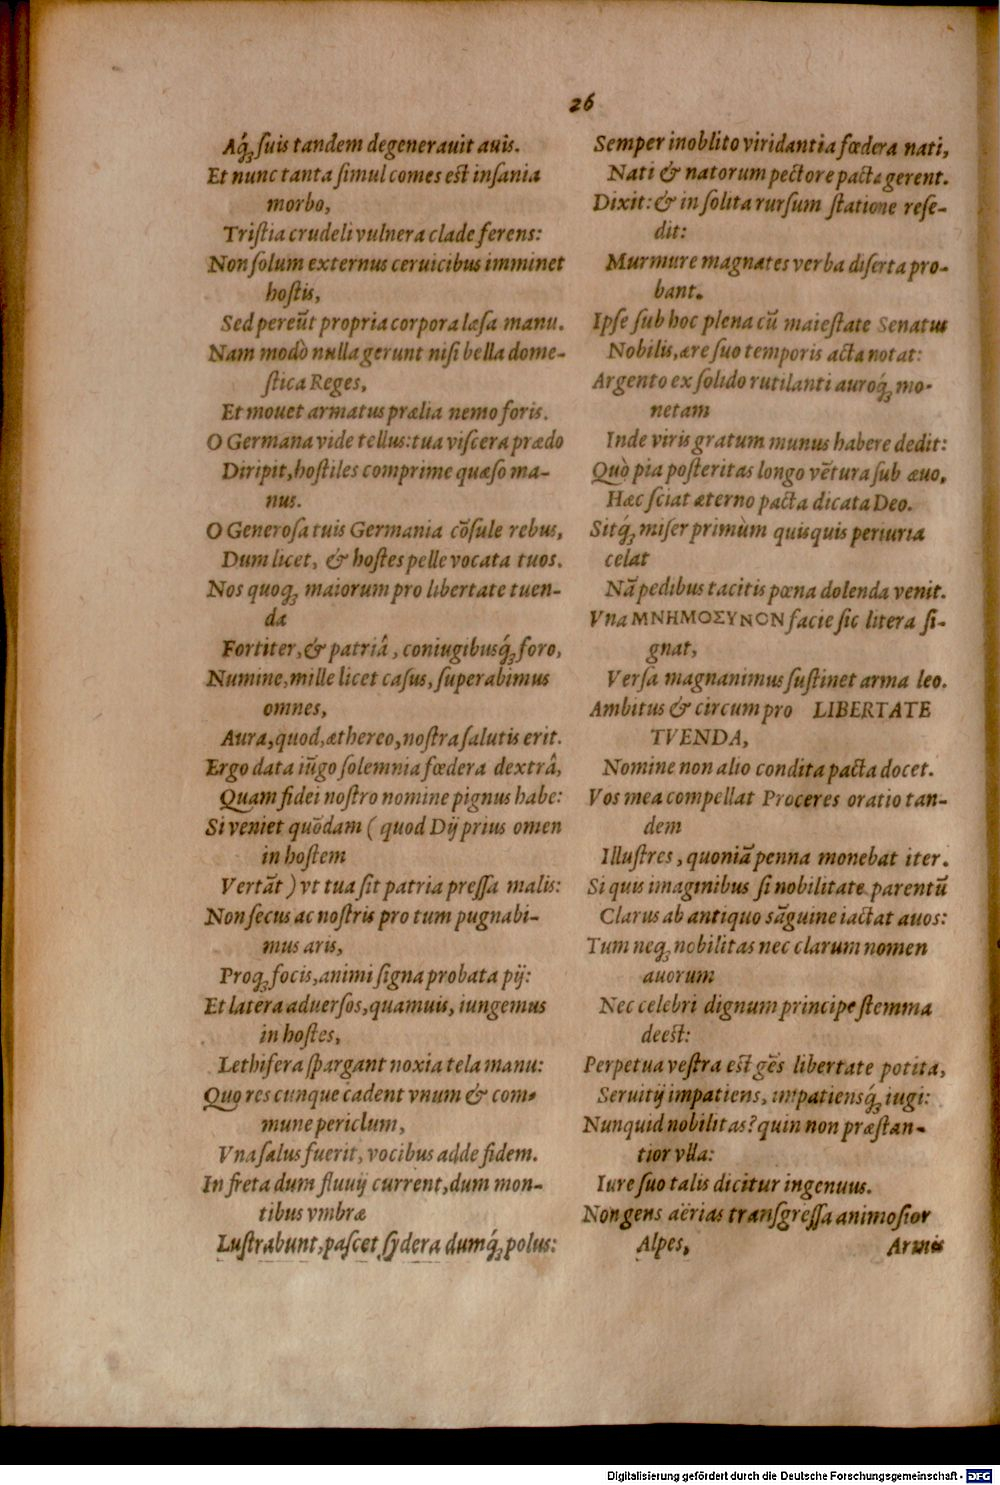 26
Aq́ꝫ suis tandem degenerauit auis.
Et nunc tanta simul comes est insania
morbo,
Tristia crudeli vulnera clade ferens:
Non solum externus ceruicibus imminet
hostis,
Sed pereūt propria corpora læsa manu.
Nam modò nulla gerunt nisi bella dome-
stica Reges,
Et mouet armatus prælia nemo foris.
O Germana vide tellus: tua viscera prædo
Diripit, hostiles comprime quæso ma-
nus.
O Generosa tuis Germania cōsule rebus,
Dum licet, & hostes pelle vocata tuos.
Nos quoqꝫ maiorum pro libertate tuen-
da
Fortiter, & patriâ, coniugibusq́ꝫ foro,
Numine, mille licet casus, superabimus
omnes,
Aura, quod, æthereo, nostra salutis erit.
Ergo data iūgo solemnia fœdera dextrâ,
Quam fidei nostro nomine pignus habe:
Si veniet quōdam ( quod Dij prius omen
in hostem
Vertāt ) vt tua sit patria pressa malis:
Non secus ac nostris pro tum pugnabi-
mus aris,
Proqꝫ focis, animi signa probata pij:
Et latera aduersos, quamuis, iungemus
in hostes,
Lethifera spargant noxia tela manu:
Quo res cunque cadent vnum & com-
mune periclum,
Vna salus fuerit, vocibus adde fidem.
In freta dum fluuij current, dum mon-
tibus vmbræ
Lustrabunt, pascet sydera dumq́ꝫ polus:
Semper inoblito viridantia fœdera nati,
Nati & natorum pectore pacta gerent.
Dixit: & in solita rursum statione rese-
dit:
Murmure magnates verba diserta pro-
bant.
Ipse sub hoc plena cū maiestate Senatus
Nobilis, ære suo temporis acta notat:
Argento ex solido rutilanti auroq́ꝫ mo-
netam
Inde viris gratum munus habere dedit:
Quò pia posteritas longo vētura sub æuo,
Hæc sciat æterno pacta dicata Deo.
Sitq́ꝫ miser primùm quisquis periuria
celat
Nā pedibus tacitis pœna dolenda venit.
Vna ΜΝΗΜΟΣΥΝΟΝ facie sic litera si-
gnat,
Versa magnanimus sustinet arma leo.
Ambitus & circum pro LIBERTATE
TVENDA,
Nomine non alio condita pacta docet.
Vos mea compellat Proceres oratio tan-
dem
Illustres, quoniā penna monebat iter.
Si quis imaginibus si nobilitate parentū
Clarus ab antiquo sāguine iactat auos:
Tum neqꝫ nobilitas nec clarum nomen
auorum
Nec celebri dignum principe stemma
deest:
Perpetua vestra est gēs libertate potita,
Seruitij impatiens, impatiensq́ꝫ iugi:
Nunquid nobilitas? quin non præstan-
tior vlla:
Iure suo talis dicitur ingenuus.
Non gens aërias transgressa animosior
Alpes,
Armis
Digitalisierung gefördert durch die Deutsche Forschungsgemeinschaft - DFG